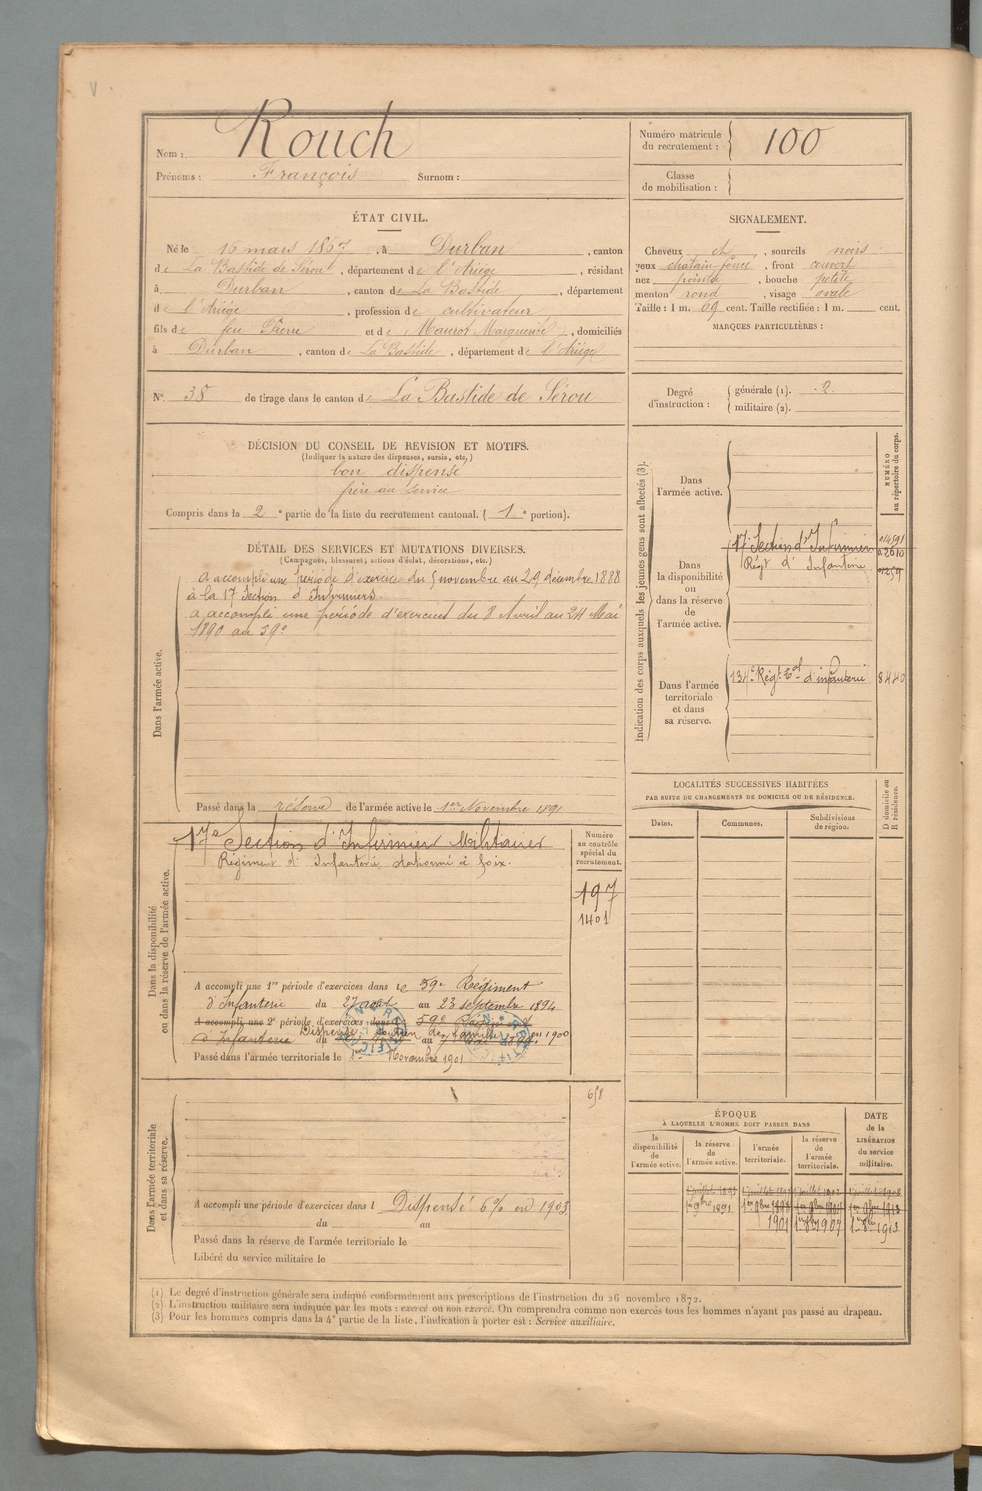 Nom : Rouch
Prénoms : François Surnom :
Numéro matricule
du recrutement : 100
Classe
de mobilisation :
ÉTAT CIVIL.
Né le 15 mars 1867, à Durban, canton
de La Bastide de Sérou, département de l'Ariège, résidant
à Durban, canton de La Bastide, département
de l'Ariège, profession de cultivateur
fils de feu Pierre et de Maurot Marguerite, domiciliés
à Durban, canton de La Bastide, département de l'Ariège
SIGNALEMENT.
Cheveux et, sourcils noirs
yeux chatain-foncé, front couvert
nez pointu, bouche petite
menton rond, visage ovale
Taille : 1 m. 69 cent. Taille rectifiée : 1 m. cent.
MARQUES PARTICULIÈRES :
N° 38 de tirage dans le canton de La Bastide de Sérou
Degré
d'instruction :
générale (1). 2
militaire (2).
DÉCISION DU CONSEIL DE REVISION ET MOTIFS.
(Indiquer la nature des dispenses, sursis, etc,)
bon dispensé
frère au service
Compris dans la 2e partie de la liste du recrutement cantonal. ( 1e portion).
DÉTAIL DES SERVICES ET MUTATIONS DIVERSES.
(Campagnes, blessures, actions d'éclat, décorations, etc.)
Dans l'armée active.
a accompli une période d'exercices du 5 novembre au 29 décembre 1888
à la 17 Section d'Infirmiers.
a accompli une période d'exercices du 8 Avril au 24 Mai
1890 au 59e
Passé dans la réserve de l'armée active le 1er Novembre 1891
Indication des corps auxquels les jeunes gens sont affectés (3).
NUMÉRO
au répertoire du corps.
Dans
l'armée active.
Dans
la disponibilité
ou
dans la réserve
de
l'armée active.
17e Section d'Infirmiers
Régt d'Infanterie
2610
01259
Dans l'armée
territoriale
et dans
sa réserve.
134e Régt Eal d'infanterie 8440
LOCALITÉS SUCCESSIVES HABITÉES
PAR SUITE DE CHANGEMENTS DE DOMICILE OU DE RÉSIDENCE.
D domicile ou
R résidence.
Dates. Communes. Subdivisions
de région.
Dans la disponibilité
ou dans la réserve de l'armée active.
17e Section d'Infirmiers Militaires
Régiment d'Infanterie stationné à Foix.
Numéro
au contrôle
spécial du
recrutement.
197
1401
A accompli une 1re période d'exercices dans le 59e Régiment
d'Infanterie du 27 août au 23 septembre 1894
A accompli une 2e période d'exercices dans le 59e
Dispensé soutien de famille en 1900
d'Infanterie du au
Passé dans l'armée territoriale le 1er Novembre 1901
Dans l'armée territoriale
et dans sa réserve.
658
A accompli une période d'exercices dans l Dispensé 6% en 1903
du au
Passé dans la réserve de l'armée territoriale le
Libéré du service militaire le
ÉPOQUE
À LAQUELLE L'HOMME DOIT PASSER DANS
la
disponibilité
de
l'armée active.
la réserve
de
l'armée active.
l'armée
territoriale.
la réserve
de
l'armée
territoriale.
DATE
de la
LIBÉRATION
du service
militaire.
1er 9bre 1891
1901 1907 1913
(1) Le degré d'instruction générale sera indiqué conformément aux prescriptions de l'instruction du 26 novembre 1872.
(2) L'instruction militaire sera indiquée par les mots : exercé ou non exercé. On comprendra comme non exercés tous les hommes n'ayant pas passé au drapeau.
(3) Pour les hommes compris dans la 4e partie de la liste, l'indication à porter est : Service auxiliaire.